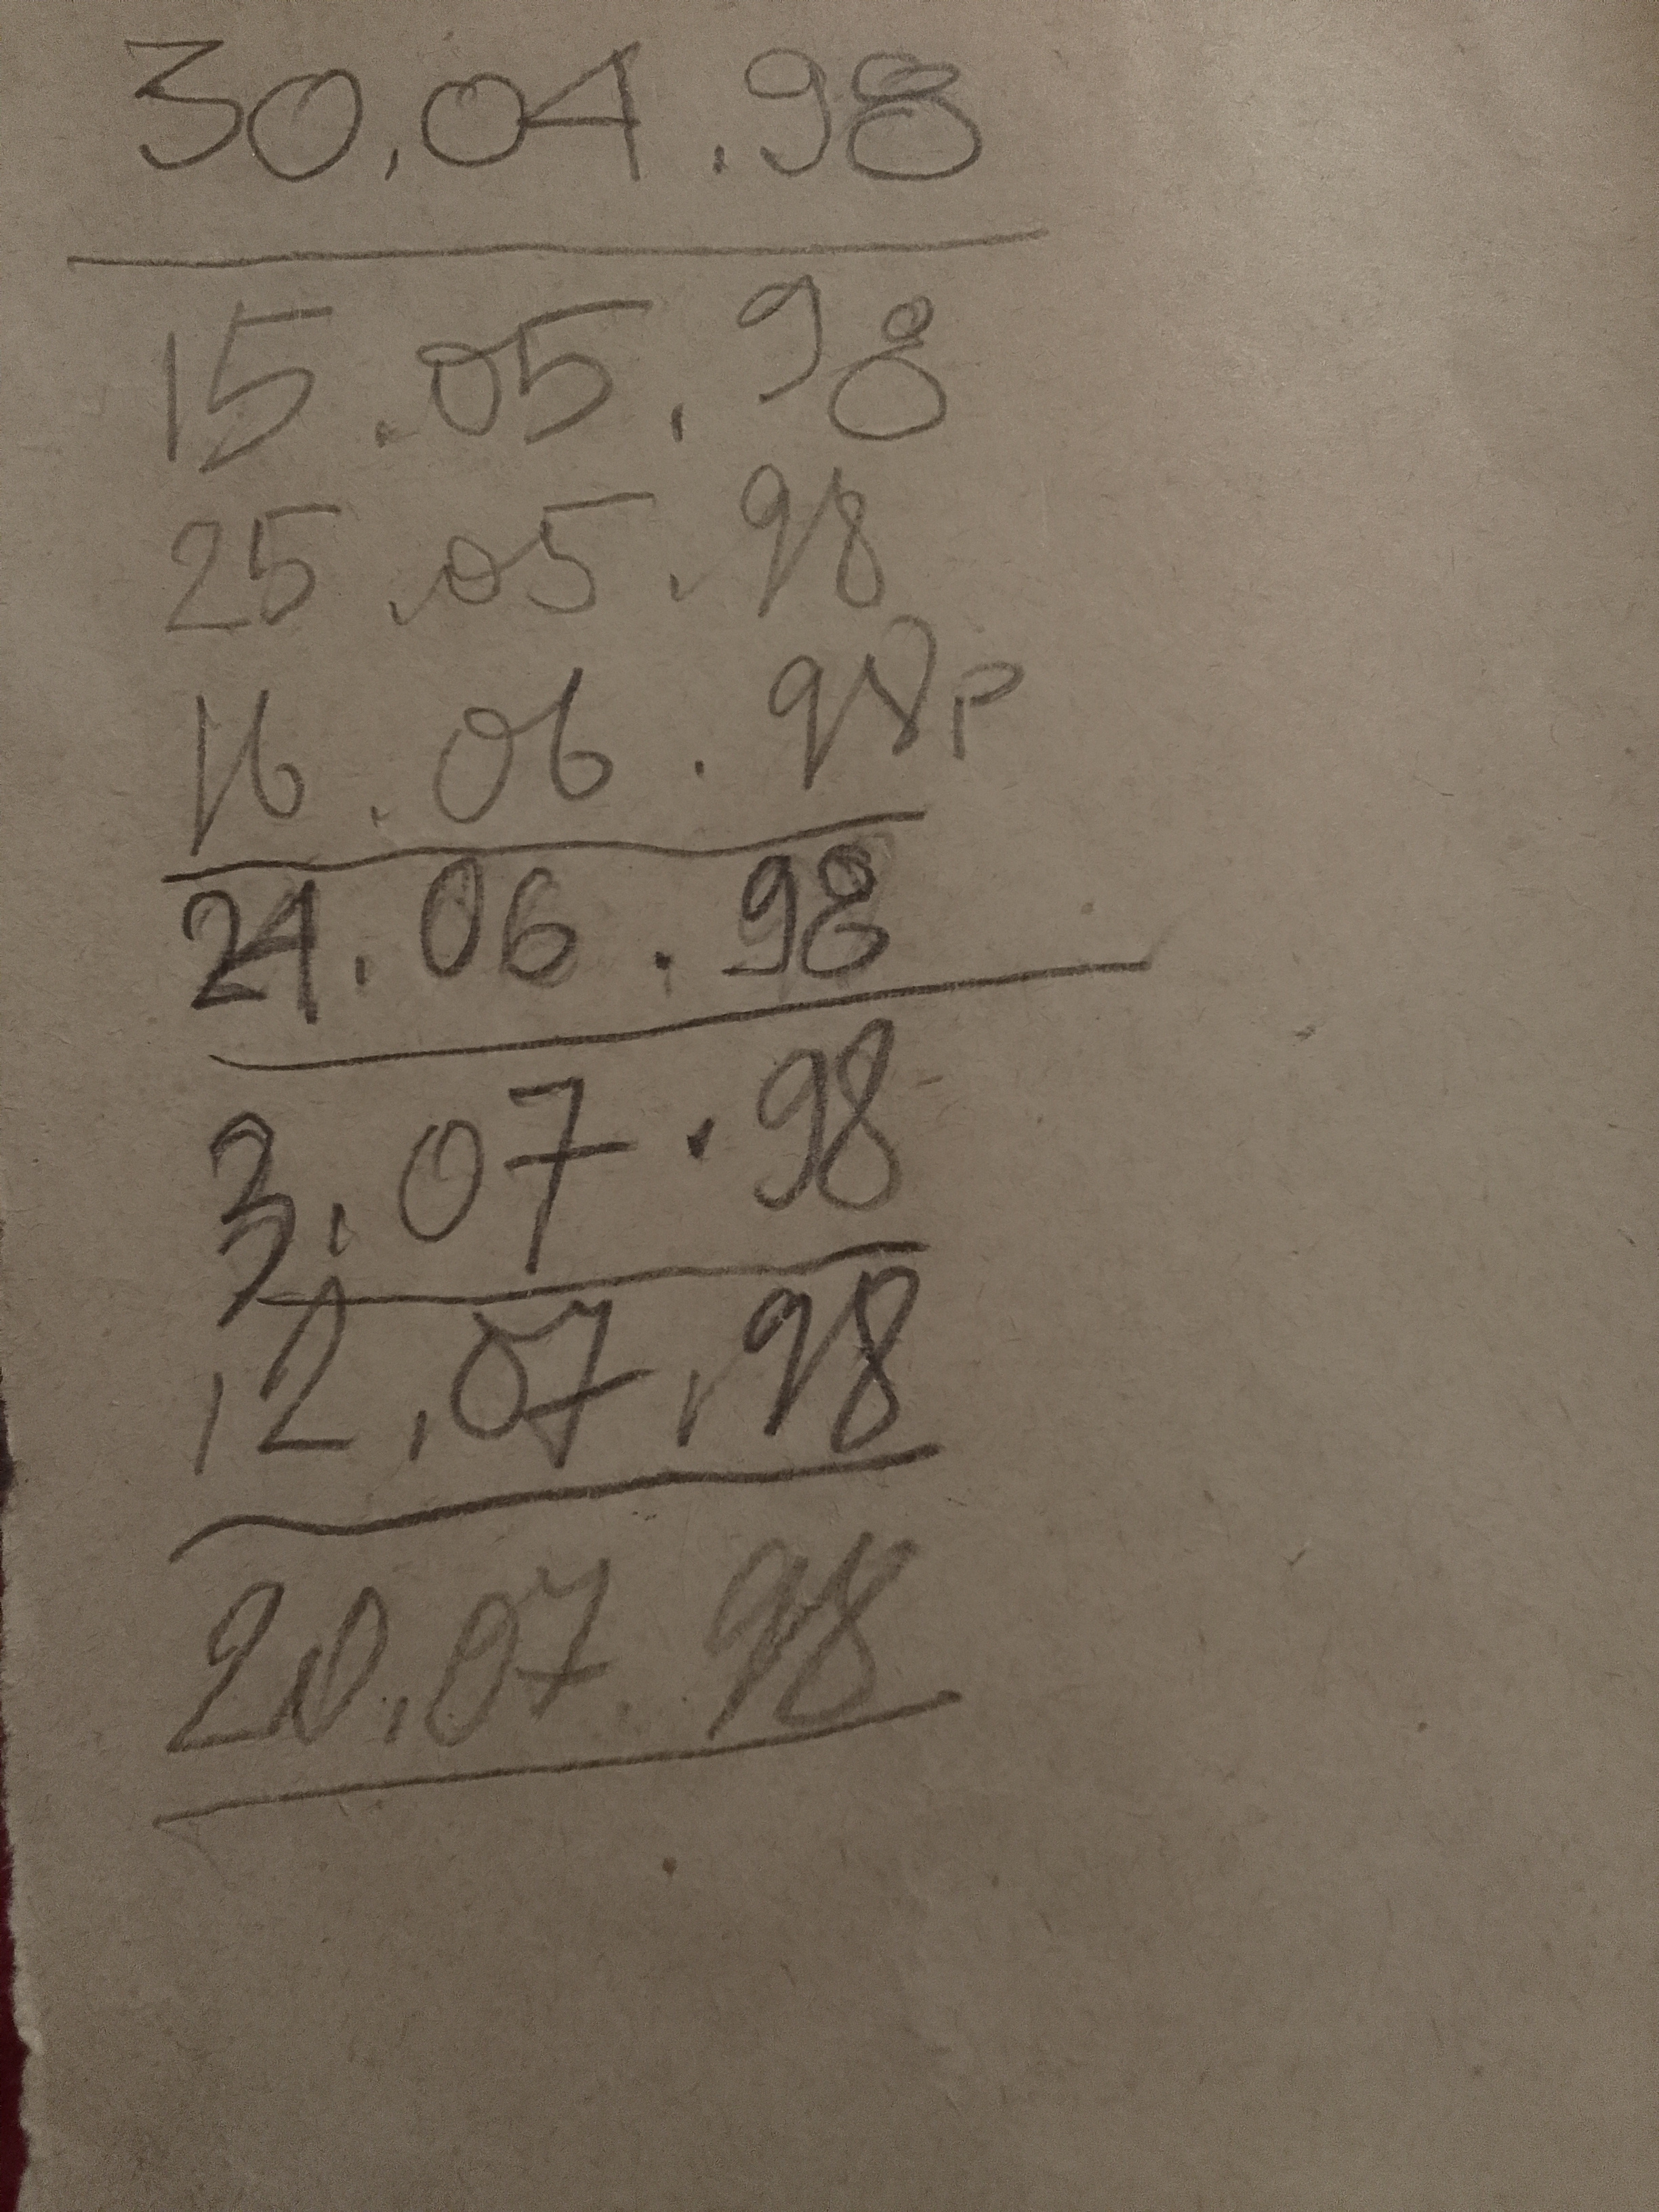 30.04.98
15.05.98
25.05.98
16.06.98 P
24.06.98
3.07.98
12.07.98
20.07.98